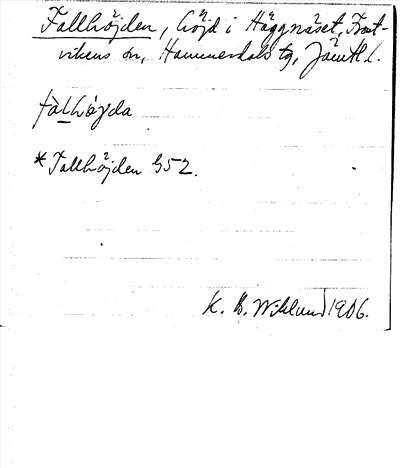 Tallhöjden, höjd i Häggnäset, Frost-
vikens sn, Hammerdals tg, Jämtl.
tàlhöyda
*Tallhöjden G52.
K. B. Wiklund 1906.